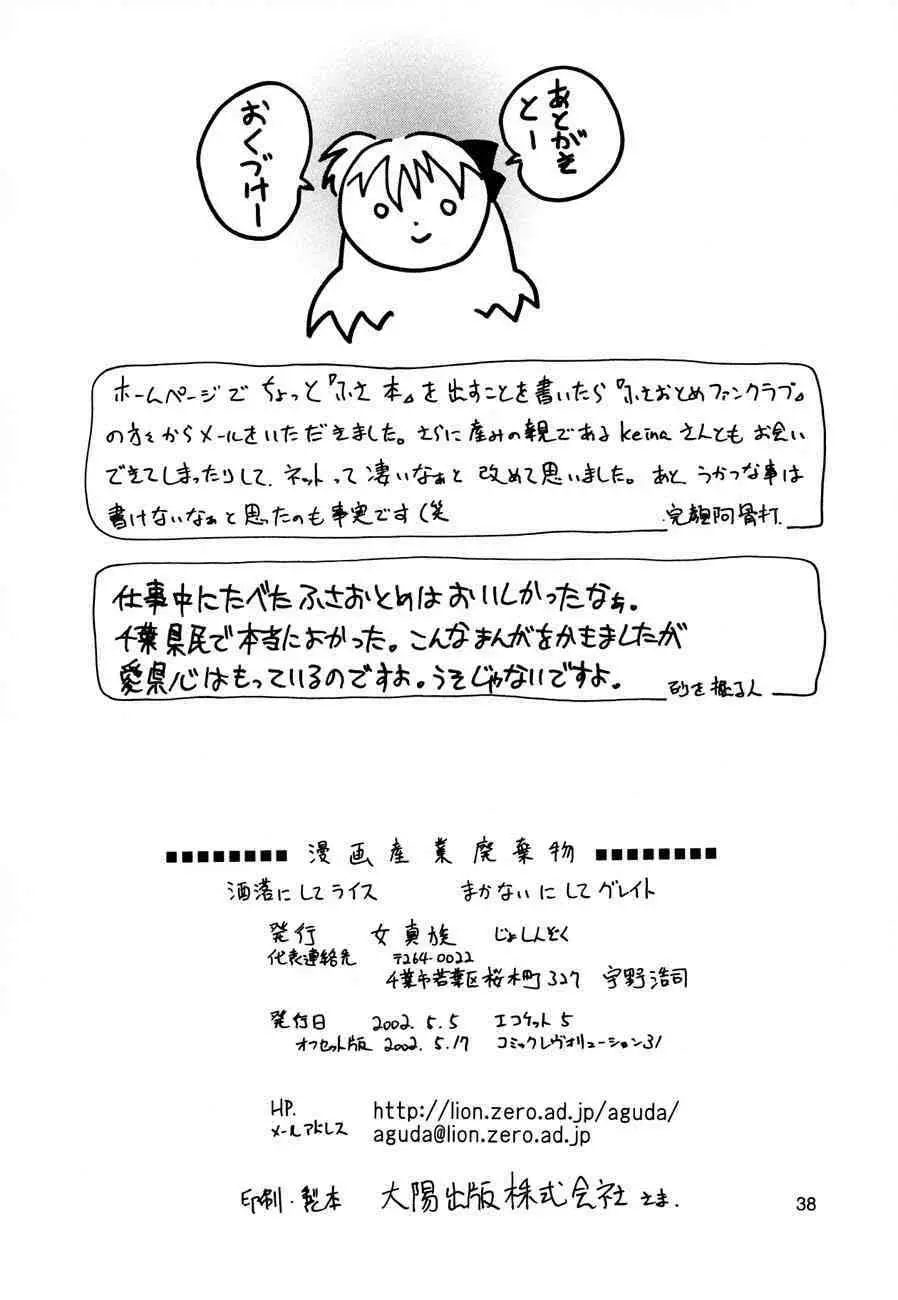 あとがき
とー
おくづけー
ホームページでちょっと『ふさ本』を出すことを書いたら『ふさおとめファンクラブ』
の方々からメールをいただきました。さらに産みの親であるkeinaさんともお会い
できてしまったりして、ネットって凄いなぁと改めて思いました。あと、うかつな事は
書けないなぁと思ったのも事実です(笑
完顔阿骨打
仕事中にたべたふさおとめはおいしかったなぁ。
千葉県民で本当によかった。こんなまんがをかきましたが
愛県心はもっているのですよ。うそじゃないですよ。
砂を掘る人
漫画産業廃棄物
洒落にしてライス まかないにしてグレイト
発行 女真族 じょしんぞく
代表連絡先 〒264-0022
千葉市若葉区桜木町327 宇野浩司
発行日 2002.5.5 エコケット5
オフセット版 2002.5.17 コミックレヴォリューション31
HP. http://lion.zero.ad.jp/aguda/
メールアドレス aguda@lion.zero.ad.jp
印刷・製本 大陽出版株式会社さま.
38